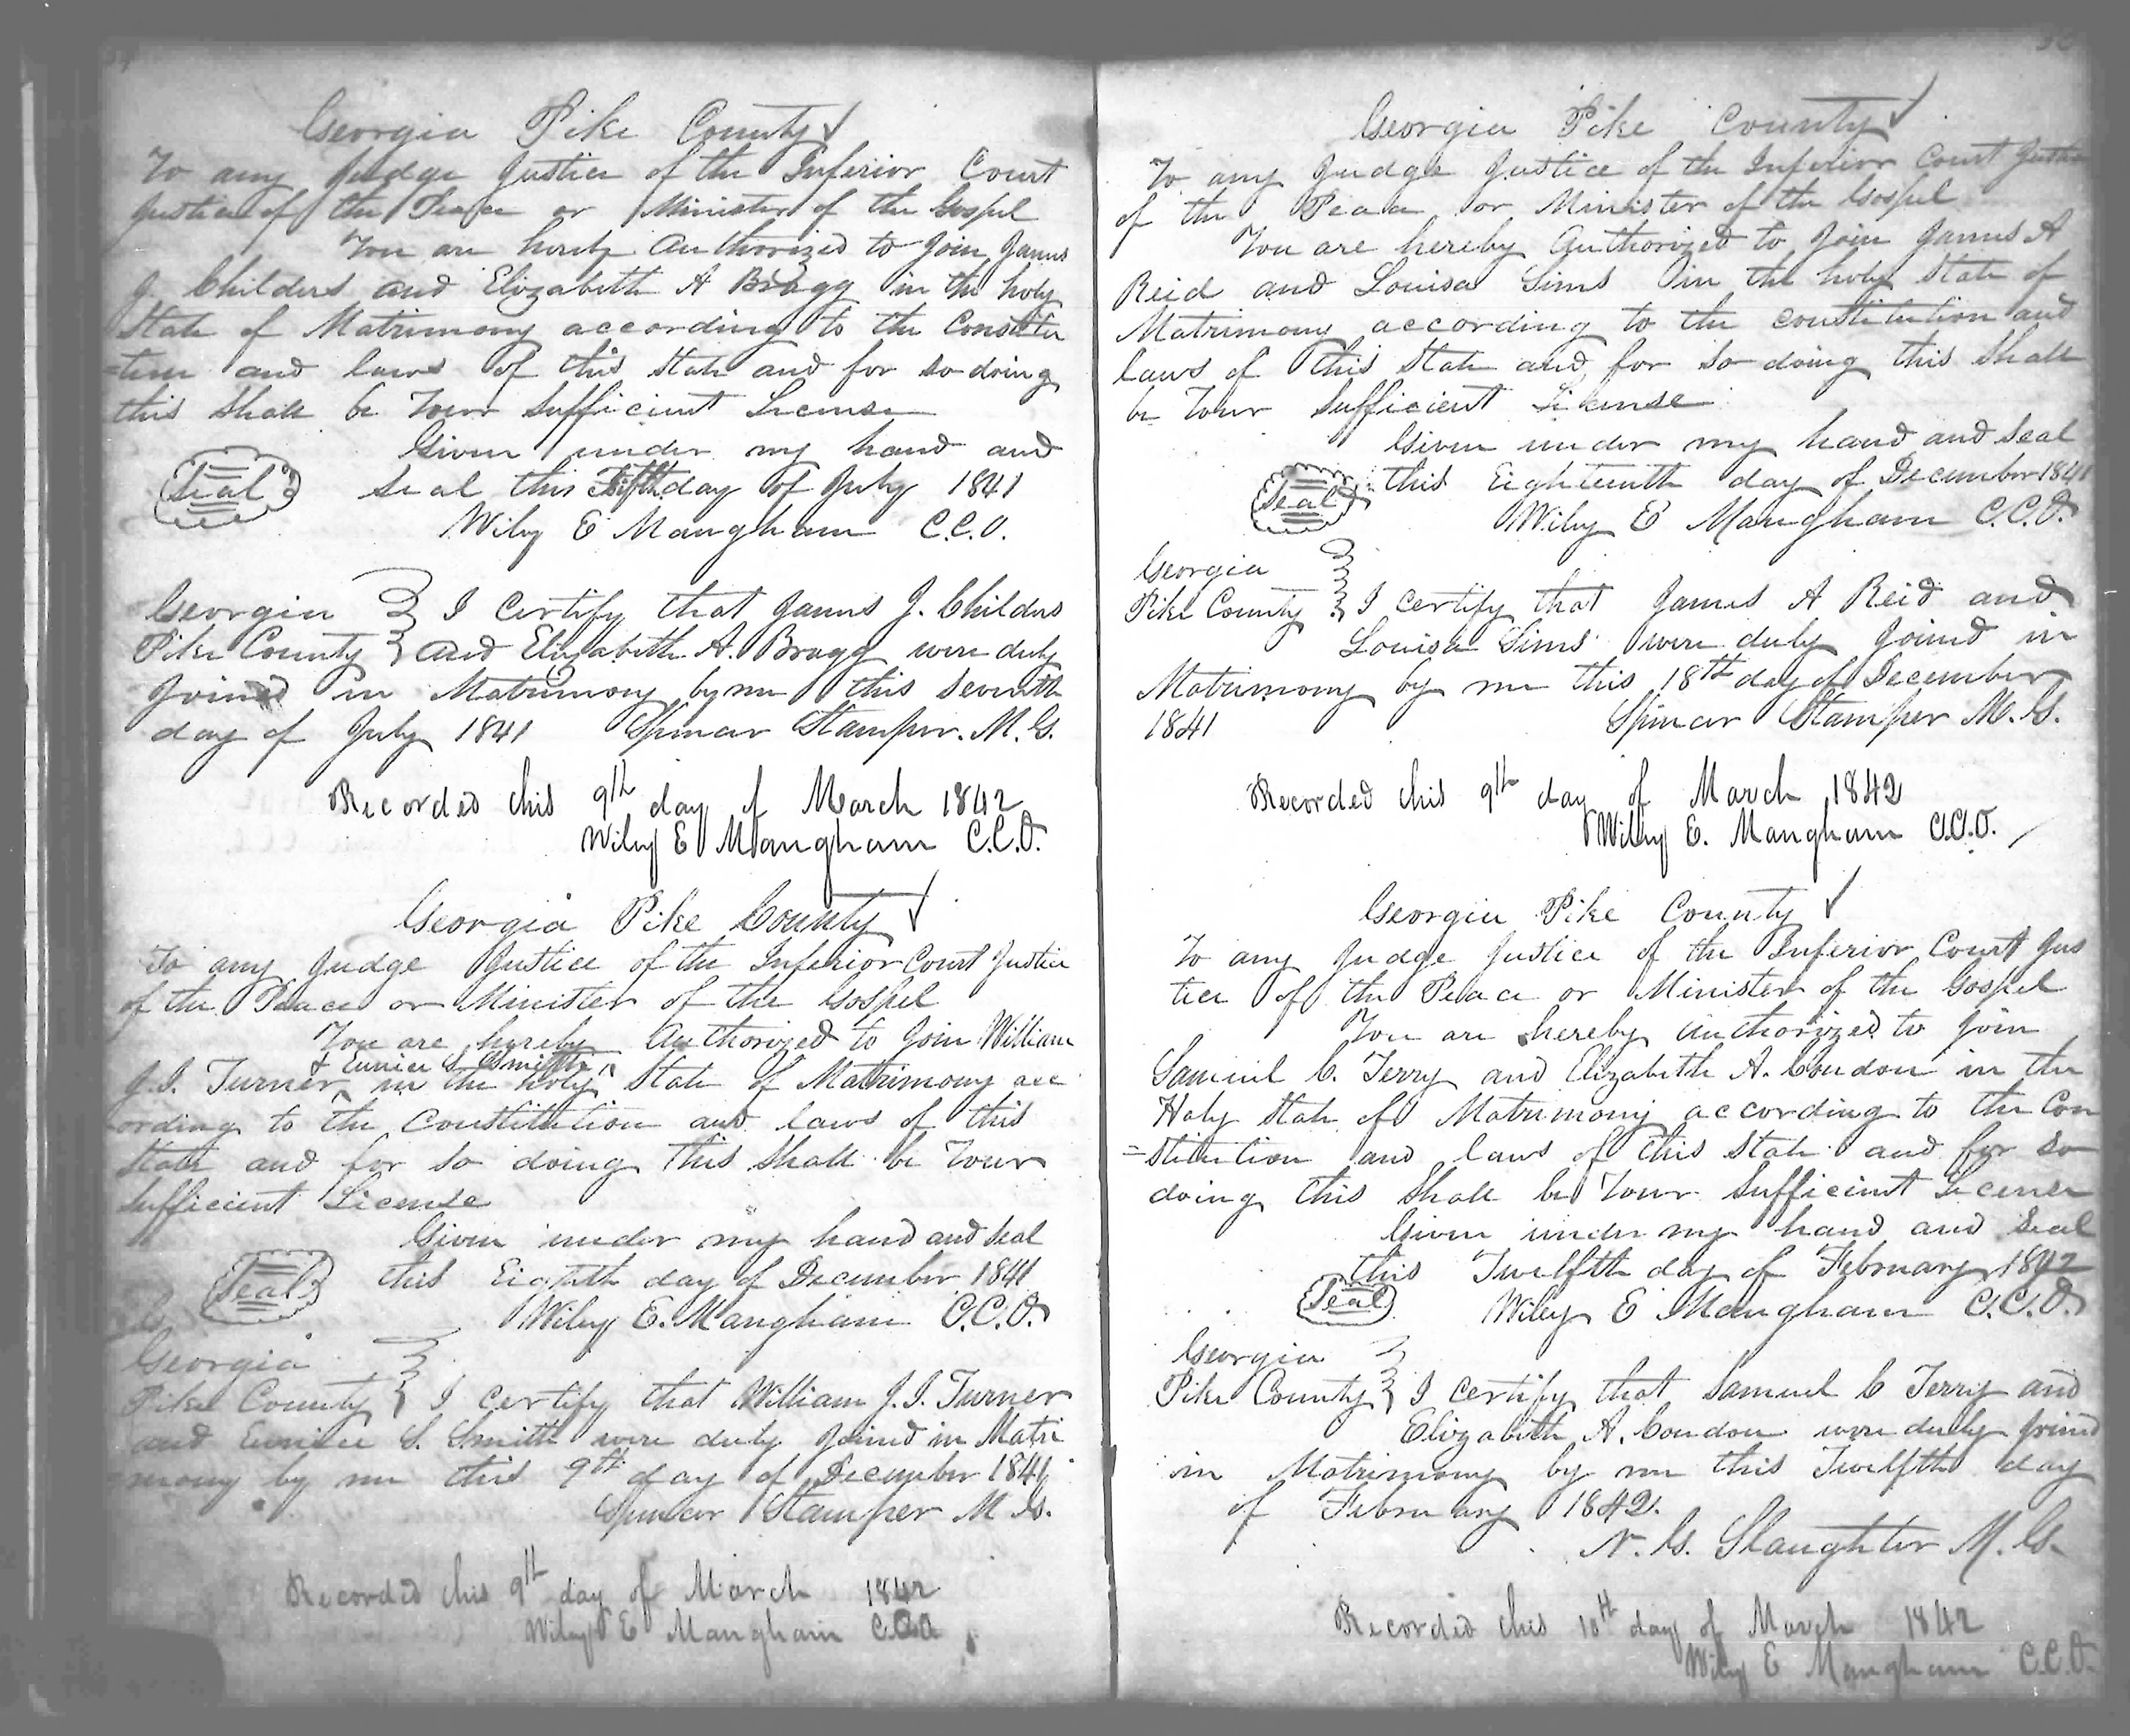 Georgia Pike County
To any Judge Justice of the Inferior Court
Justice of the Peace or Minister of the Gospel
You are hereby Authorized to Join James
J. Childers and Elizabeth A Bragg in the holy
State of Matrimony according to the Constitu
=tion and laws of this State and for so doing
this Shall be Your Sufficient License
Given under my hand and
Seal
Seal this Fifth day of July 1841
Wiley E Mangham C.C.O.
Georgia
Pike County
I Certify that James J. Childers
and Elizabeth A. Bragg were duly
Joined in Matrimony by me this Seventh
day of July 1841 Spencer Stamper. M.G.
Recorded this 9th day of March 1842
Wiley E Mangham C.C.O.
Georgia Pike County
To any Judge Justice of the Inferior Court Justice
of the Peace or Minister of the Gospel
You are hereby Authorized to Join William
& Eunice S Smith
J.J. Turner in the holy State of Matrimony acc
ording to the Constitution and laws of this
State and for so doing this Shall be Your
Sufficient License
Given under my hand and Seal
Seal
this Eighth day of December 1841
Wiley E. Mangham C.C.O.
Georgia
Pike County I Certify that William J.J. Turner
and Eunice S. Smith were duly Joined in Matri
=mony by me this 9th day of December 1841
Spencer Stamper M G.
Recorded this 9th day of March 1842
Wiley E Mangham C.C.O
Georgia Pike County
To any Judge Justice of the Inferior Court Justice
of the Peace or Minister of the Gospel
You are hereby Authorized to Join James A
Reid and Louisa Sims in the holy State of
Matrimony according to the constitution and
laws of this State and for so doing this Shall
be Your Sufficient License
Given under my hand and Seal
Seal
this Eighteenth day of December 1841
Wiley E Mangham C.C.O.
Georgia
Pike County I Certify that James A Reid and
Louisa Sims were duly Joined in
Matrimony by me this 18th day of December
1841 Spencer Stamper M.G.
Recorded this 9th day of March 1842
Wiley E. Mangham C.C.O.
Georgia Pike County
To any Judge Justice of the Inferior Court Jus
tice of the Peace or Minister of the Gospel
You are hereby Authorized to Join
Samuel C. Terry and Elizabeth A. Coudon in the
Holy State of Matrimony according to the Con
=stitution and laws of this State and for so
doing this Shall be Your Sufficient License
Given under my hand and Seal
this Twelfth day of February 1842
Seal
Wiley E Mangham C.C.O.
Georgia
Pike County I Certify that Samuel C Terry and
Elizabeth A. Coudon were duly Joined
in Matrimony by me this Twelfth day
of February 1842.
N. G. Slaughter M.G.
Recorded this 10th day of March 1842
Wiley E Mangham C.C.O.